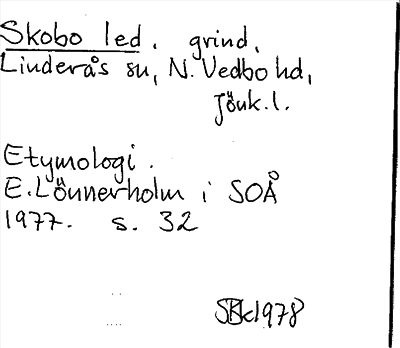 Skobo led. grind.
Linderås sn, N. Vedbo hd,
Jönk. l.
Etymologi.
E. Lönnerholm i SOÅ
1977. s. 32
1978